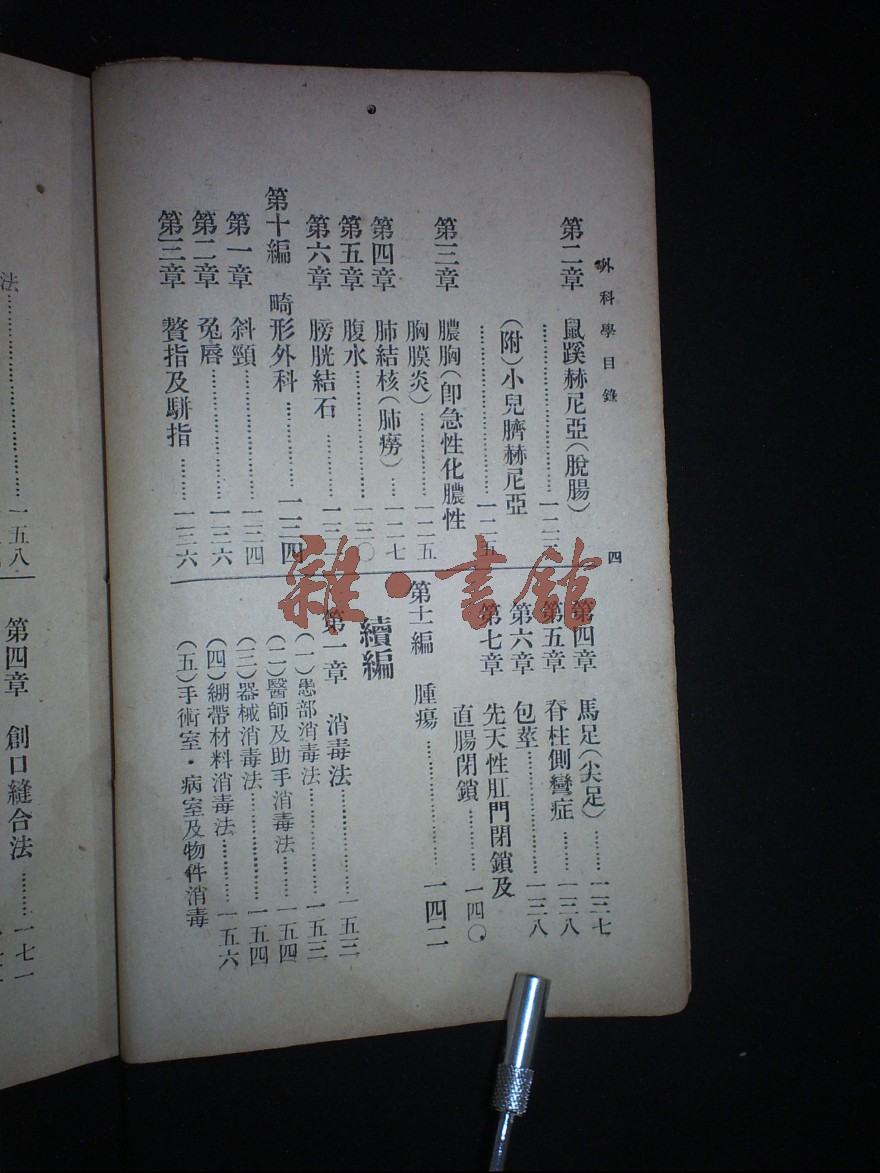 外科學目錄
四
第二章 鼠蹊赫尼亞(脫腸)
……一二
(附)小兒臍赫尼亞
……一二五
第三章 膿胸(卽急性化膿性
胸膜炎)……一二五
第四章 肺結核(肺癆)…一二七
第五章 腹水……一三〇
第六章 膀胱結石……一三
第十編 畸形外科……一三四
第一章 斜頸……一三四
第二章 兔唇……一三六
第三章 贅指及駢指……一三六
第四章 馬足(尖足)……一三七
第五章 脊柱側彎症……一三八
第六章 包莖……一三八
第七章 先天性肛門閉鎖及
直腸閉鎖……一四〇
第十一編 腫瘍……一四二
續編
第一章 消毒法……一五三
(一)患部消毒法……一五三
(二)醫師及助手消毒法……一五四
(三)器械消毒法……一五四
(四)繃帶材料消毒法……一五六
(五)手術室·病室及物件消毒
法……一五八
第四章 創口縫合法……一七一
雜·書館